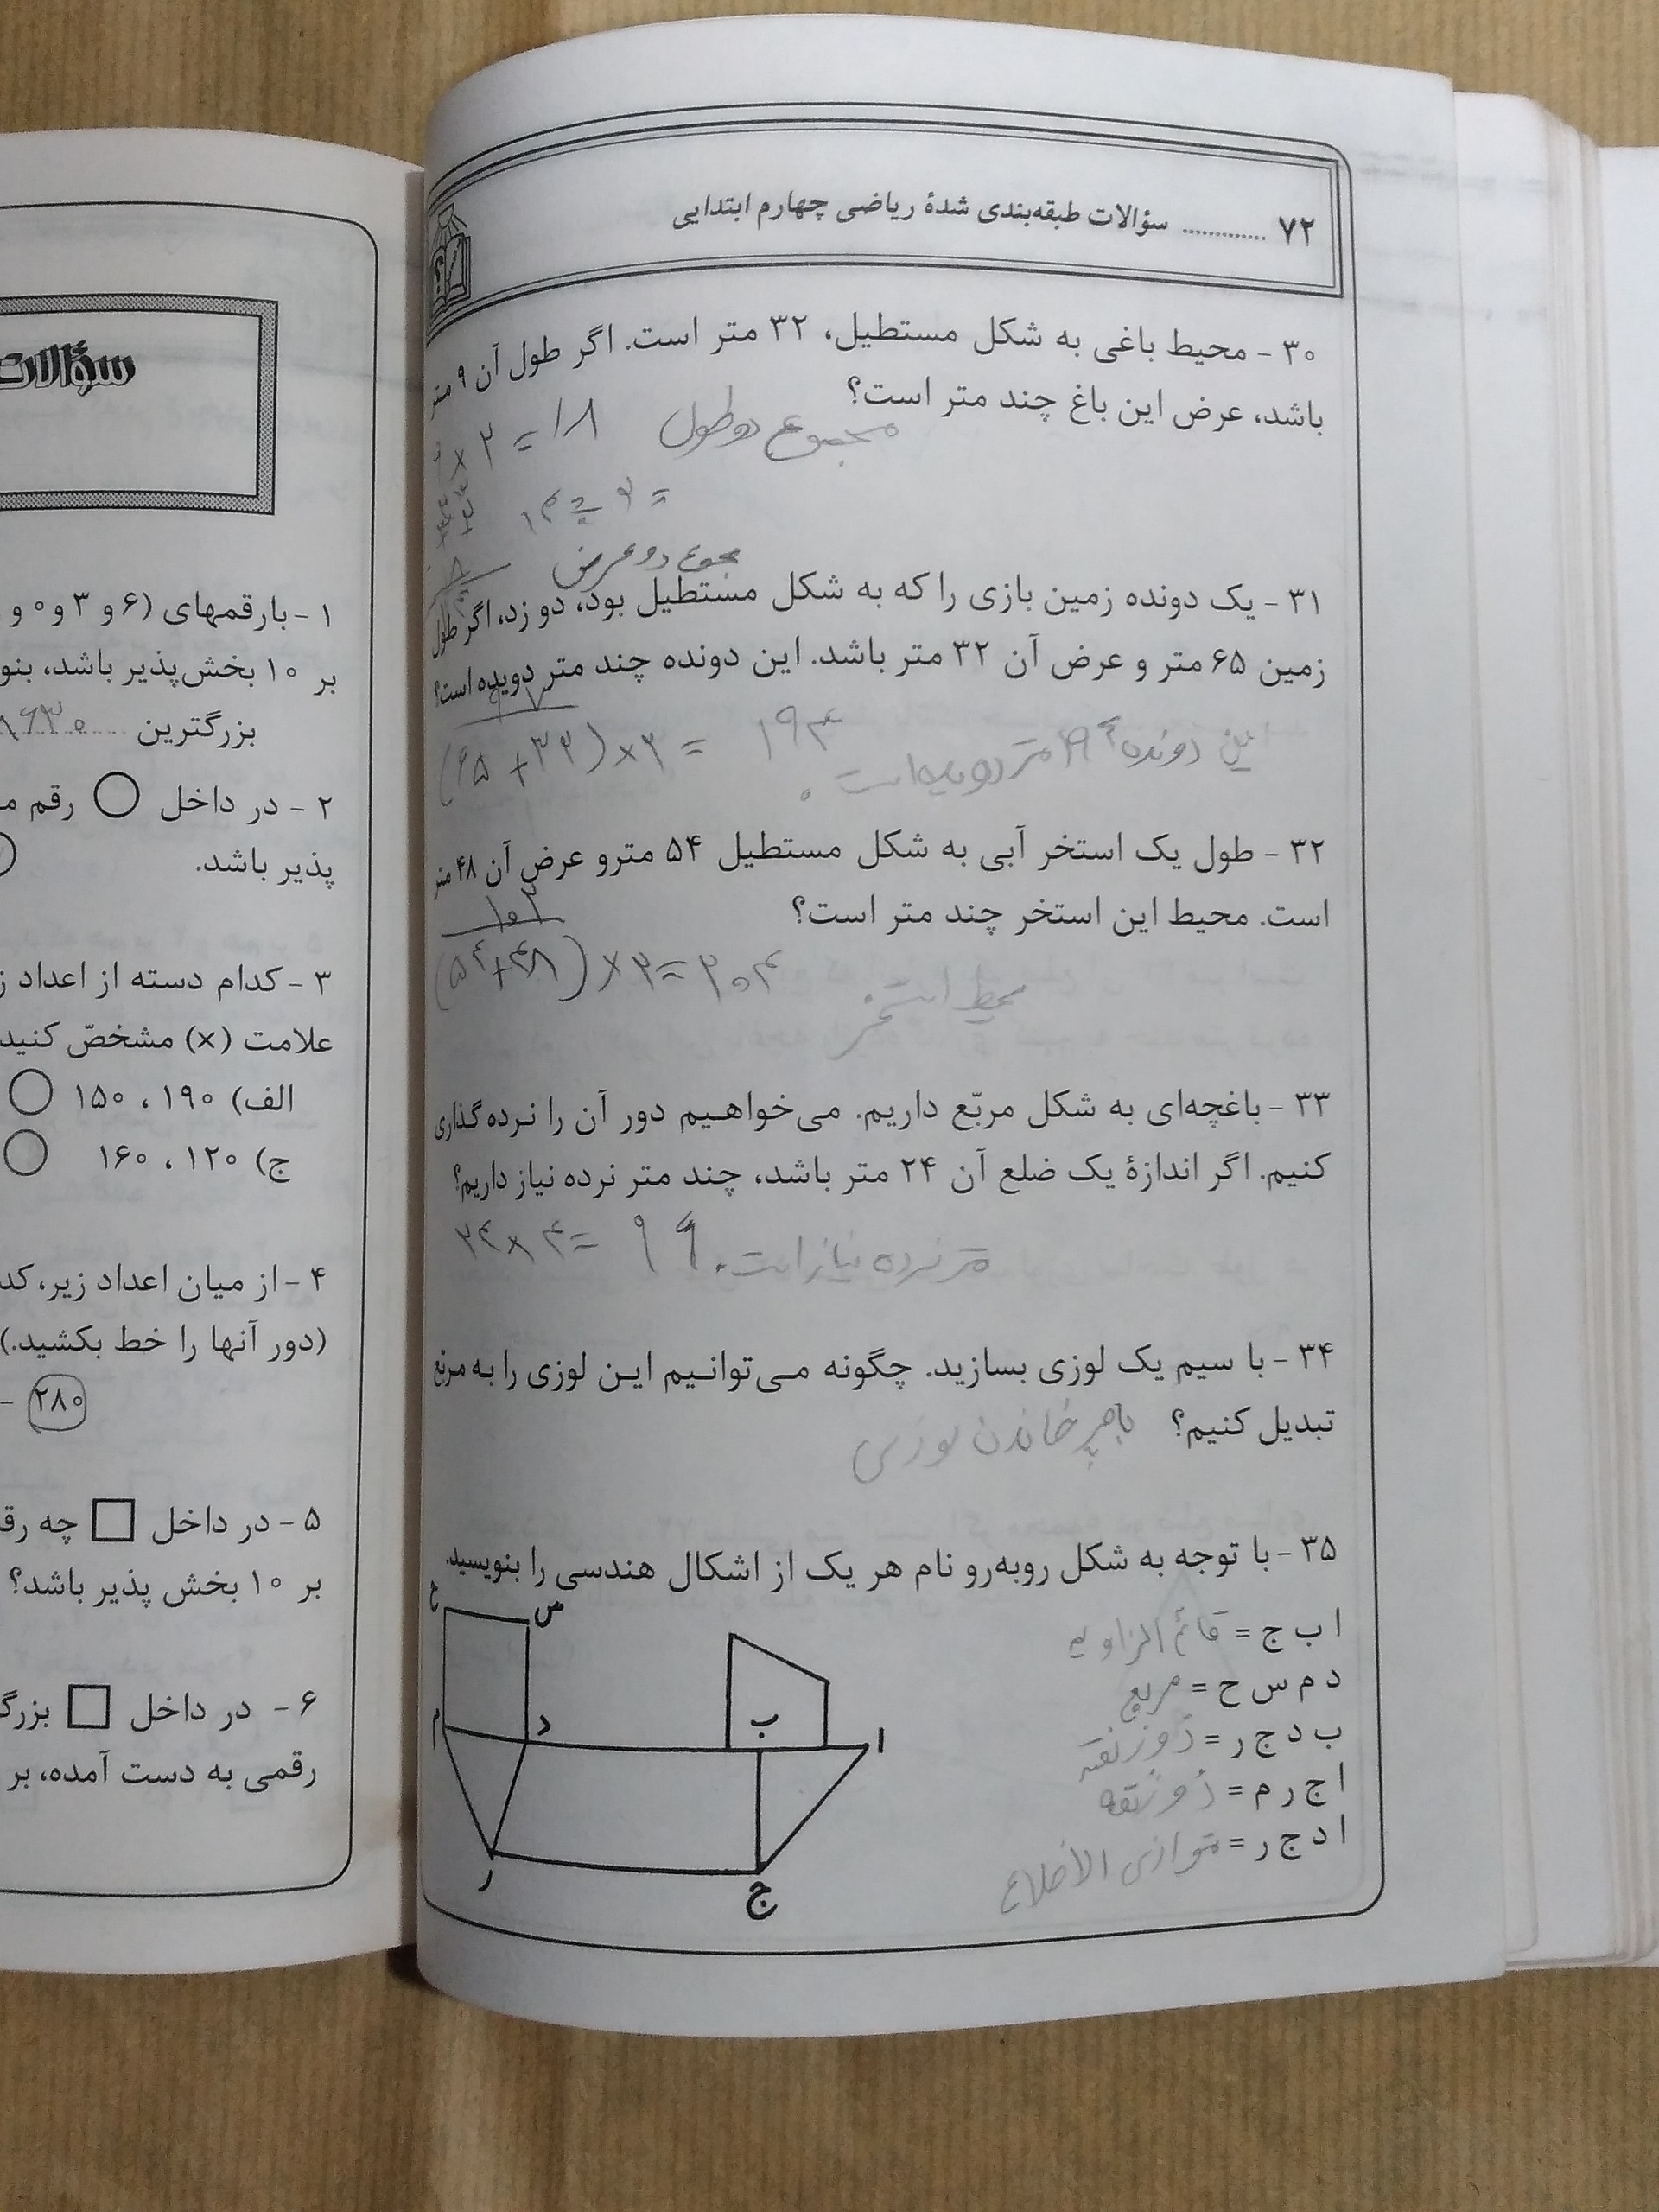 ۷۲ ............ سؤالات طبقه‌بندی شدهٔ ریاضی چهارم ابتدایی
۳۰ - محیط باغی به شکل مستطیل، ۳۲ متر است. اگر طول آن ۹ متر
باشد، عرض این باغ چند متر است؟
مجموع دو طول ۹×۲ = ۱۸
مجموع دو عرض
۳۱ - یک دونده زمین بازی را که به شکل مستطیل بود، دو زد، اگر طول
زمین ۶۵ متر و عرض آن ۳۲ متر باشد. این دونده چند متر دویده است؟
۹۷
(۶۵+۳۲)×۲ = ۱۹۴ این دونده ۱۹۴ متر دویده است.
۳۲ - طول یک استخر آبی به شکل مستطیل ۵۴ مترو عرض آن ۴۸ متر
است. محیط این استخر چند متر است؟
۱۰۲
(۵۴+۴۸)×۲=۲۰۴ محیط استخر
۳۳ - باغچه‌ای به شکل مربّع داریم. می‌خواهیم دور آن را نرده‌گذاری
کنیم. اگر اندازهٔ یک ضلع آن ۲۴ متر باشد، چند متر نرده نیاز داریم؟
۲۴×۴=۹۶ متر نرده نیاز است.
۳۴ - با سیم یک لوزی بسازید. چگونه می‌توانیم این لوزی را به مربّع
تبدیل کنیم؟ با چرخاندن لوزی
۳۵ - با توجه به شکل روبه‌رو نام هر یک از اشکال هندسی را بنویسید.
ا ب ج = قائم الزاویه
د م س ح = مربع
ب د ج ر = ذوزنقه
ا ج ر م = ذوزنقه
ا د ج ر = متوازی الاضلاع
ح
س
م
د
ب
ا
ر
ج
سؤالات
۱ - بارقمهای (۶ و ۳ و ۰ و
بر ۱۰ بخش‌پذیر باشد، بنو
بزرگترین ۸۶۳۰
۲ - در داخل ○ رقم
پذیر باشد.
۳ - کدام دسته از اعداد
علامت (×) مشخصّ کنید
الف) ۱۹۰ ، ۱۵۰
ج) ۱۲۰ ، ۱۶۰
۴ - از میان اعداد زیر، کد
(دور آنها را خط بکشید.)
۲۸۰ -
۵ - در داخل □ چه رق
بر ۱۰ بخش پذیر باشد؟
۶ - در داخل □ بزرگ
رقمی به دست آمده، بر